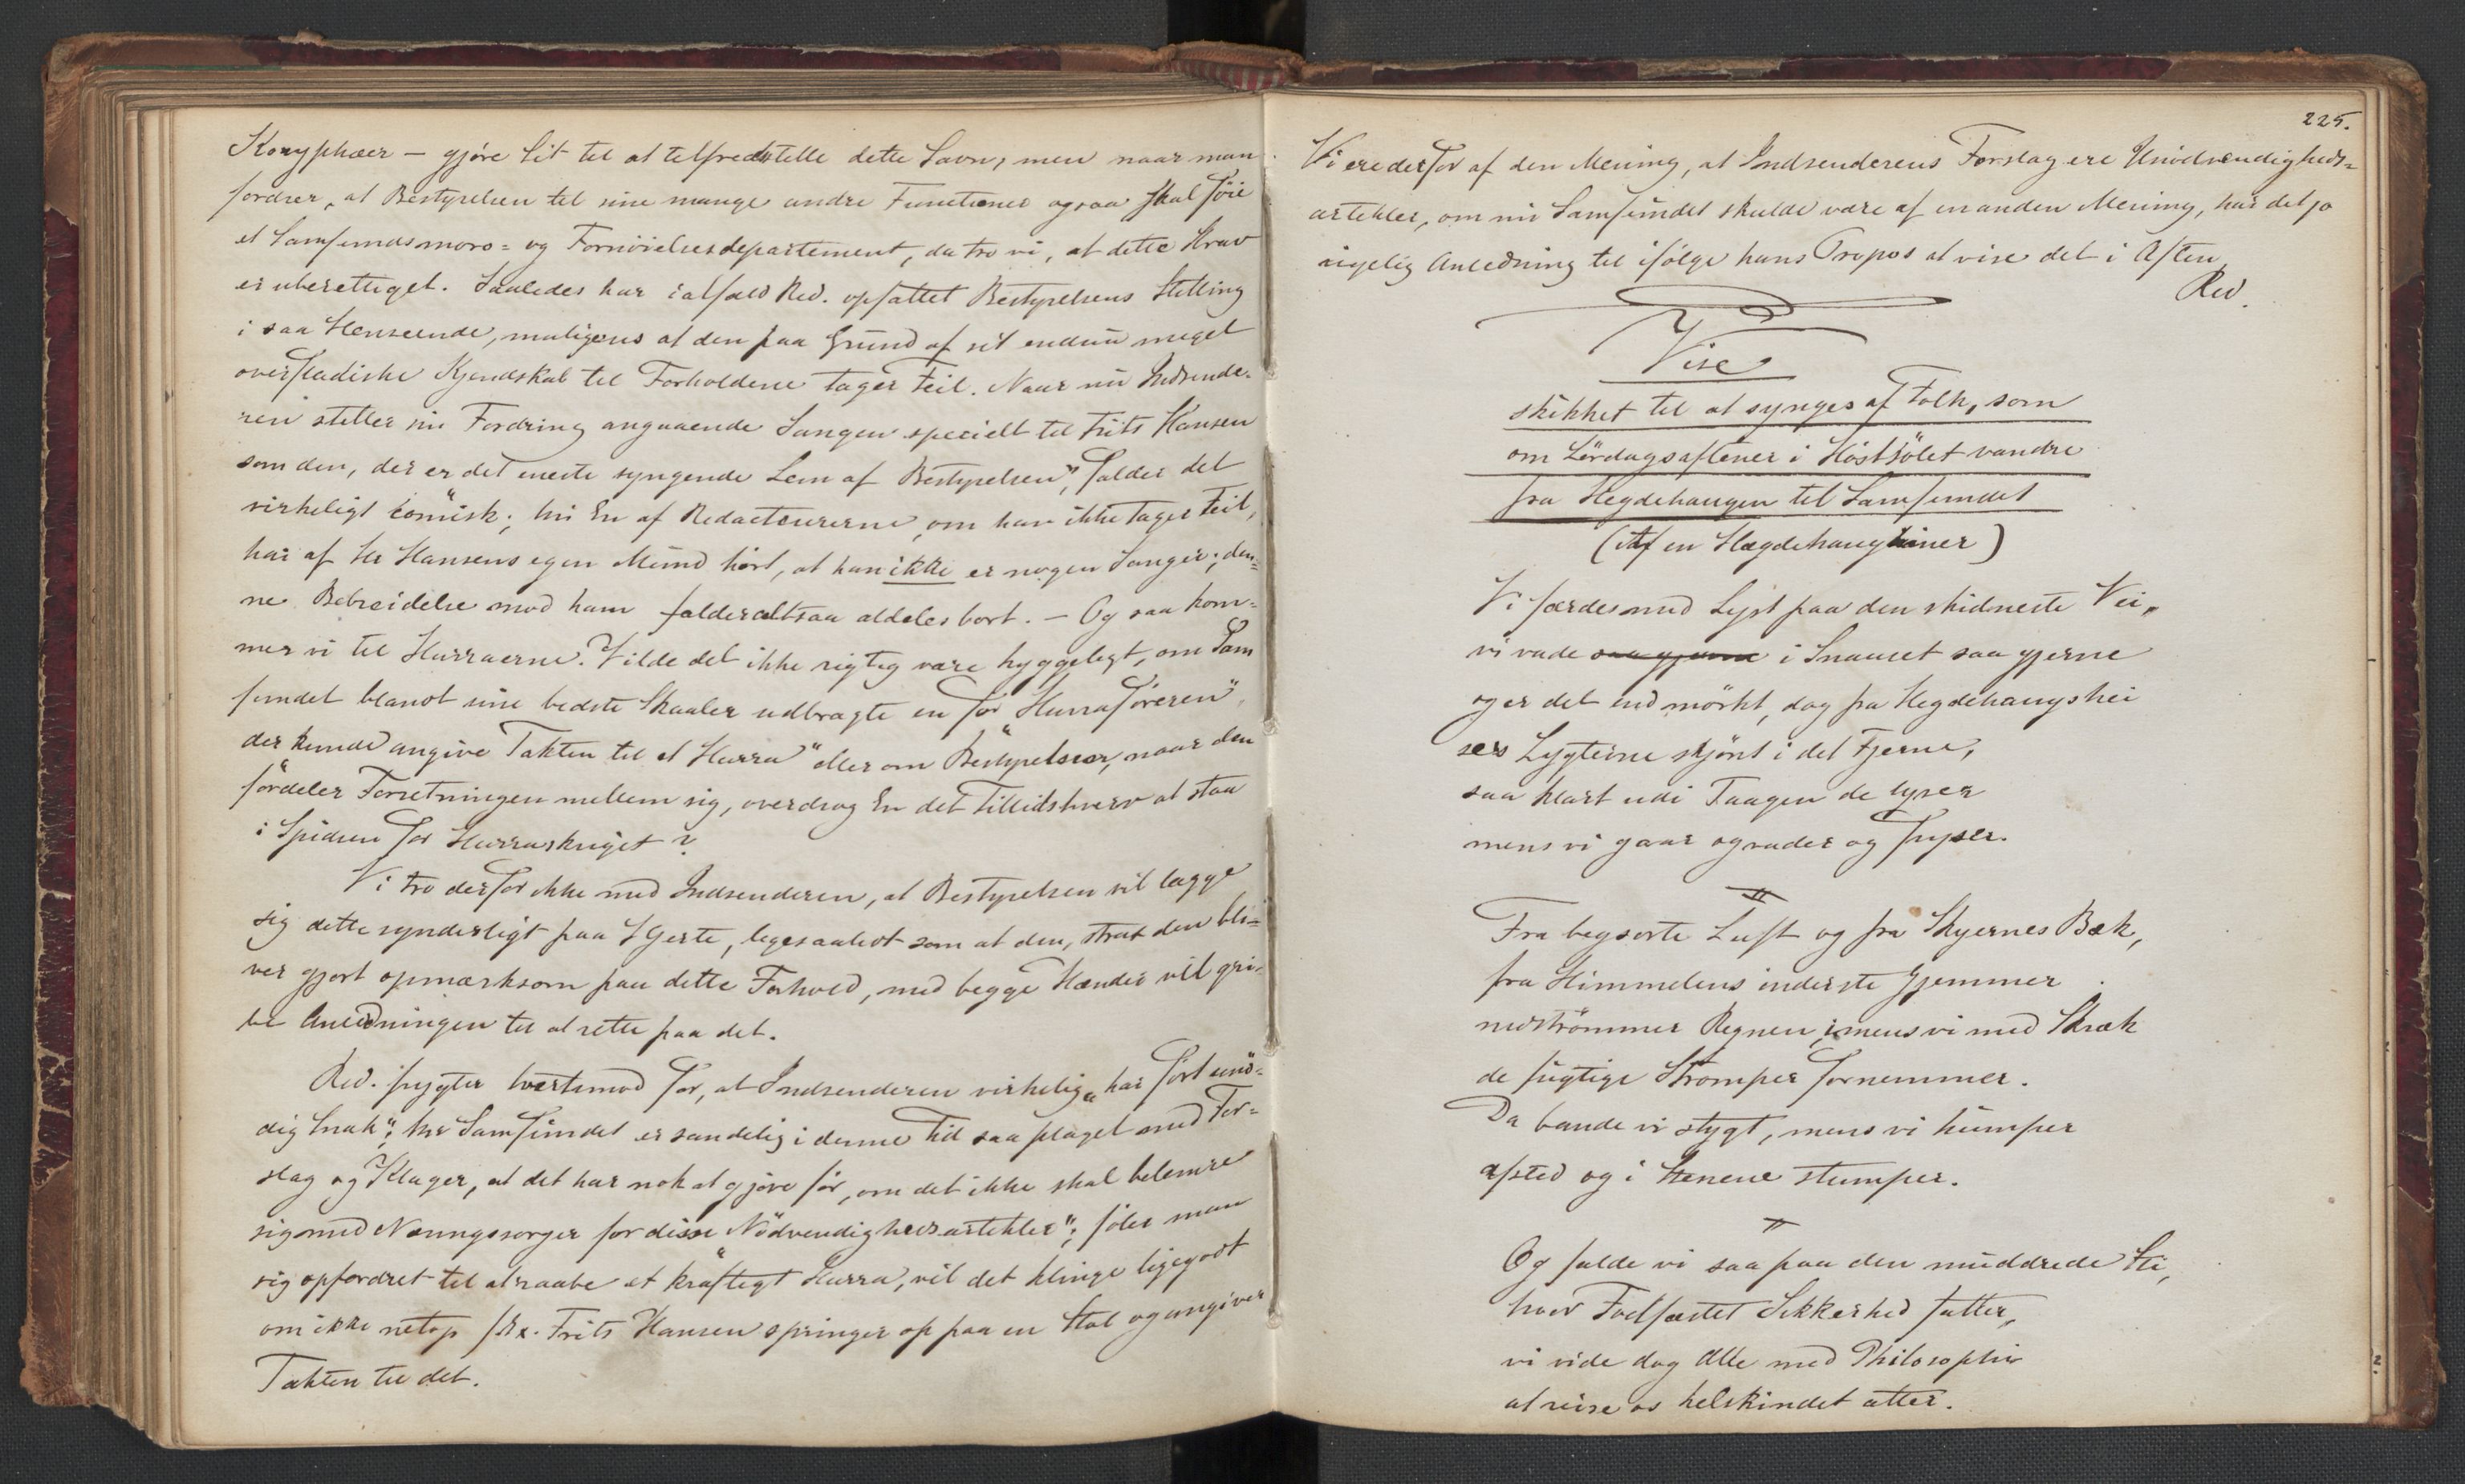 Koryphæer — gjøre Sit til at tilfredsstille dette Savn, men naar man
fordrer, at Bestyrelsen til sine mange andre Functioner ogsaa skal föie
et Samfundsmoro= og Fornöielsesdepartement, da tro vi, at dette Krav
er uberettiget. Saaledes har ialfald Red. opfattet Bestyrelsens Stilling
i saa Henseende, muligens at den paa Grund af sit endnu meget
overfladiske Kjendskab til Forholdene tager Feil. Naar nu Indsende-
ren stiller sin Fordring angaaende Sangen specielt til Frits Hansen
som den, der er det eneste syngende Lem af Bestyrelsen", falder det
virkeligt comisk; thi En af Redacteurerne, om han ikke tager Feil,
har af Hr Hansens egen Mund hört, at han ikke er nogen Sanger; den=
ne Bebreidelse mod ham falder altsaa aldeles bort. — Og saa kom=
mer vi til Hurraerne. Vilde det ikke rigtig være hyggeligt, om Sam
fundet blandt sine bedste Skaaler udbragte en for "Hurraföreren",
der kunde angive Takten til et Hurra" eller om Bestyrelsen, naar den
fördeler Forretningen mellem sig, overdrog En det Tillidshverv at staa
i Spidsen for Hurraskriget?
Vi tro derfor ikke med Indsenderen, at Bestyrelsen vil lægge
sig dette synderligt paa Hjerte, ligesaalidt som at den, strax den bli=
ver gjort opmærksom paa dette Forhold, med begge Hænder vil gri=
be Anledningen til at rette paa det.
Red. frygter tvertimod for, at Indsenderen virkelig "har fört unö=
dig Snak"; thi Samfundet er sandelig i denne Tid saa plaget med For=
slag og Klager, at det har nok at gjøre för, om det ikke skal belemre
sig med Næringssorger for disse "Nödvendighedsartikler"; föler man
sig opfordret til at raabe et kraftigt Hurra, vil det klinge ligegodt
om ikke netop f.Ex. Frits Hansen springer op paa en Stol og angiver
Takten til det.
225.
Vi ere derfor af den Mening, at Indsenderens Forslag ere Unödvendigheds=
artikler, om nu Samfundet skulde være af en anden Mening, har det jo
rigelig Anledning til ifölge hans Propos at vise det i Aften
Red.
Vise
skikket til at synges af Folk, som
om Lördagsaftener i Höstsölet vandre
fra Hegdehaugen til Samfundet
(Af en Hægdehaugianer)
Vi færdes med Lyst paa den skidneste Vei,
vi vade saa gjerne i Snauset saa gjerne
og er det end mörkt, dog fra Hegdehaugshei
sees Lygterne skjönt i det Fjerne,
saa klart udi Taagen de lyser
mens vi gaar og vader og fryser.
II
Fra begsorte Luft og fra Skyernes Bæk,
fra Himmelens inderste Gjemmer
nedströmmer Regnen, imens vi med Skræk
de fugtige Strømper fornemmer.
Da bande vi stygt, mens vi humper
afsted og i Stenene stumper.
II
Og falde vi saa paa den muddrede Sti,
hvor Fodfæstet Sikkerhed fatter,
vi vide dog Alle med Philosophie
at reise os helskindet atter.